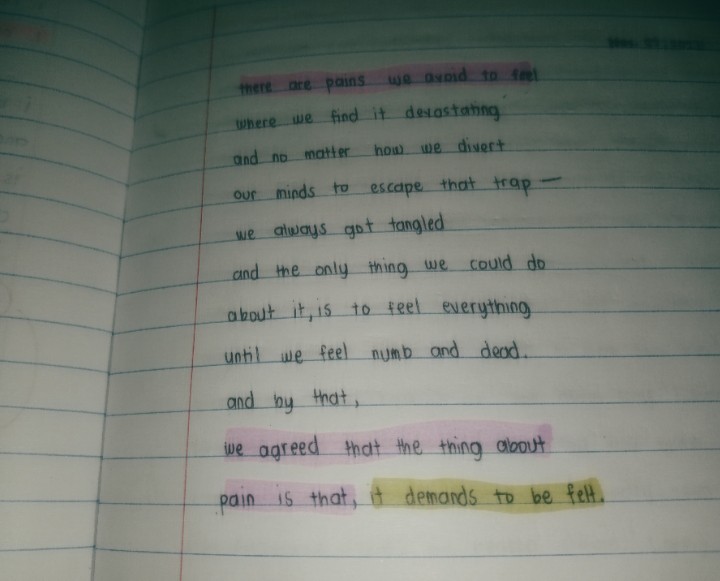 there are pains we avoid to feel
where we find it devastating
and no matter how we divert
our minds to escape that trap —
we always got tangled
and the only thing we could do
about it, is to feel everything
until we feel numb and dead.
and by that,
we agreed that the thing about
pain is that, it demands to be felt.